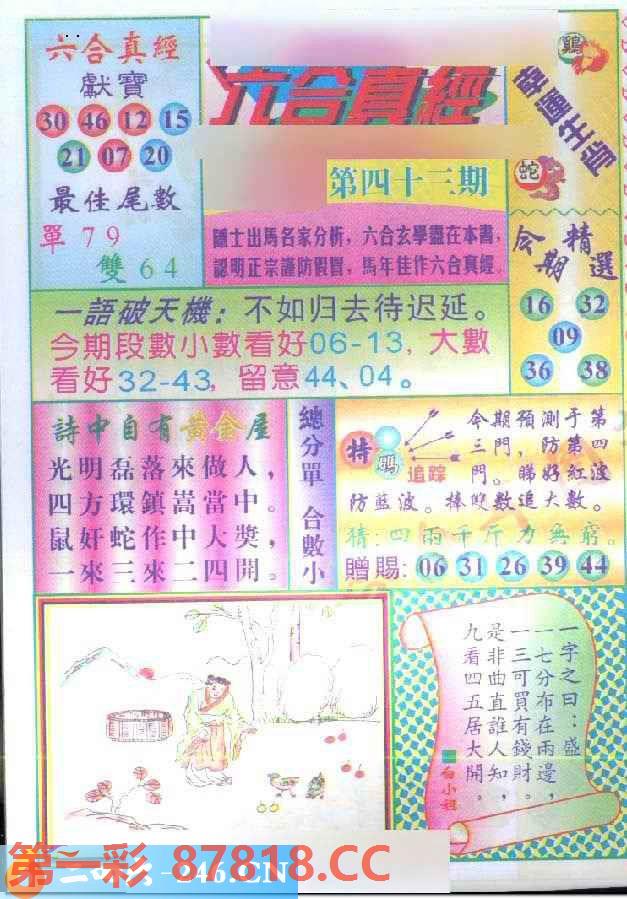 六合真經
獻寶
30 46 12 15
21 07 20
最佳尾數
單 7 9
雙 6 4
六合真經
第四十三期
隱士出馬名家分析，六合玄學盡在本書，
認明正宗謹防假冒，馬年佳作六合真經。
鷄
蛇
今期精選
16 32
09
36 38
一語破天機：不如归去待迟延。
今期段數小數看好06-13，大數
看好32-43，留意44、04。
詩中自有黃金屋
光明磊落來做人，
四方環鎮嵩當中。
鼠奸蛇作中大獎，
一來三來二四開。
總分單 合數小
特碼
追踪
今期預測于第
三門，防第四
門。睇好紅波
防藍波。捧雙數追大數。
猜：四兩千斤力無窮。
贈賜：06 31 26 39 44
一字之曰：盛
一七分布在兩邊，
一三可買有錢財。
是非曲直誰人知，
九看四五居大開。
白小姐
第一彩 87818.CC
-246.CN